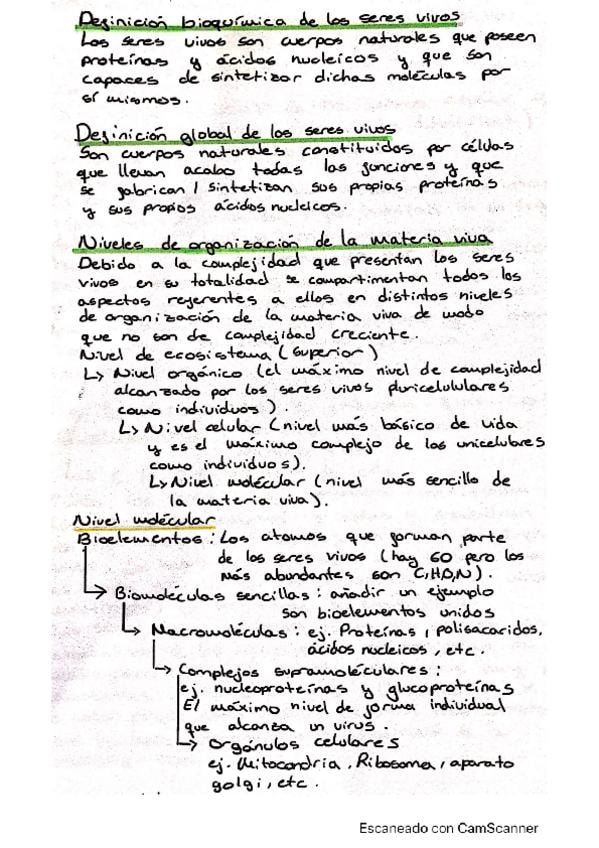 Definición bioquímica de los seres vivos
Los seres vivos son cuerpos naturales que poseen
proteínas y ácidos nucleicos y que son
capaces de sintetizar dichas moléculas por
sí mismos.
Definición global de los seres vivos
Son cuerpos naturales constituidos por células
que llevan acabo todas las funciones y que
se fabrican / sintetizan sus propias proteínas
y sus propios ácidos nucleicos.
Niveles de organización de la materia viva
Debido a la complejidad que presentan los seres
vivos en su totalidad se compartimentan todos los
aspectos referentes a ellos en distintos niveles
de organización de la materia viva de modo
que no son de complejidad creciente.
Nivel de ecosistema (superior)
↳ Nivel orgánico (el máximo nivel de complejidad
alcanzado por los seres vivos pluricelulares
como individuos).
↳ Nivel celular (nivel más básico de vida
y es el máximo complejo de los unicelulares
como individuos).
↳ Nivel molécular (nivel más sencillo de
la materia viva).
Nivel molécular
Bioelementos: Los atomos que forman parte
de los seres vivos (hay 60 pero los
más abundantes son C,H,O,N).
→ Biomoléculas sencillas: añadir un ejemplo
son bioelementos unidos
→ Macromoléculas: ej. Proteínas, polisacaridos,
ácidos nucleicos, etc.
→ Complejos supramoléculares:
ej. nucleoproteínas y glucoproteínas
El máximo nivel de forma individual
que alcanza un virus.
→ Orgánulos celulares
ej. Mitocondria, Ribosoma, aparato
golgi, etc.
Escaneado con CamScanner